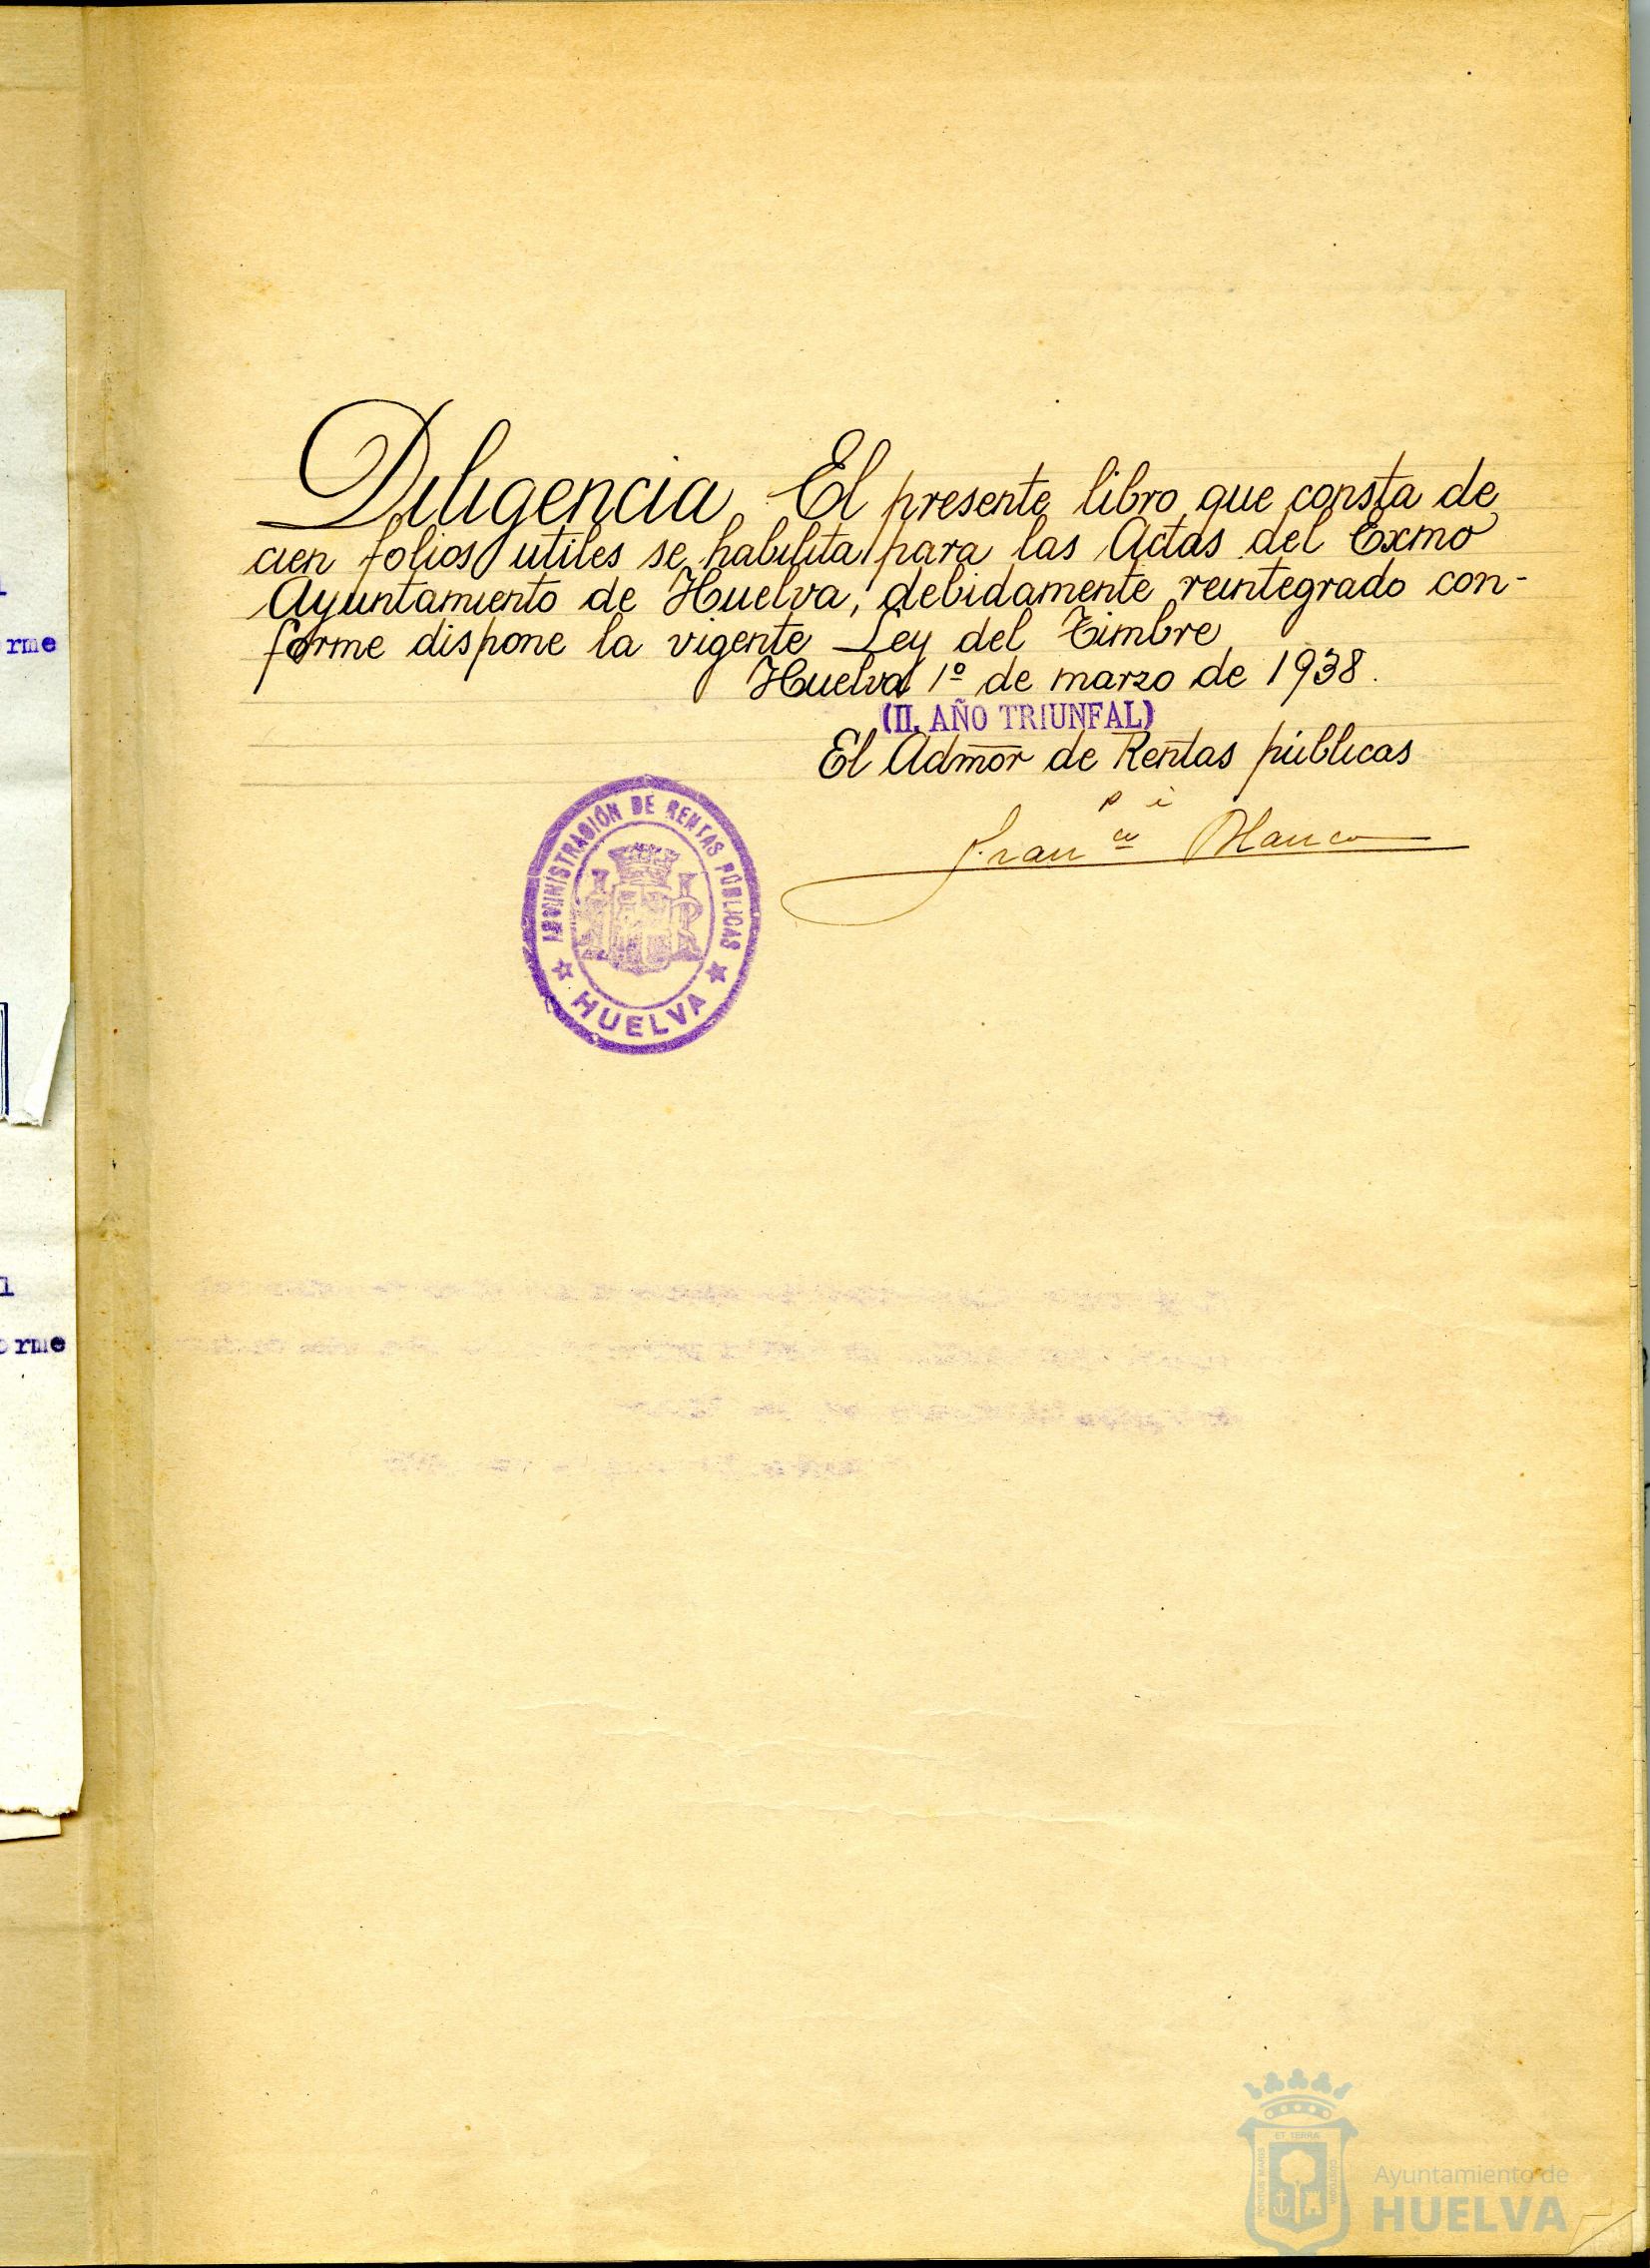 Diligencia El presente libro que consta de
cien folios utiles se habilita para las Actas del Exmo
Ayuntamiento de Huelva, debidamente reintegrado con-
forme dispone la vigente Ley del Timbre
Huelva 1º de marzo de 1938.
(II. AÑO TRIUNFAL)
El Admor de Rentas públicas
p i
Fran co Blanco
ADMINISTRACIÓN DE RENTAS PÚBLICAS
HUELVA
rme
orme
Ayuntamiento de
HUELVA